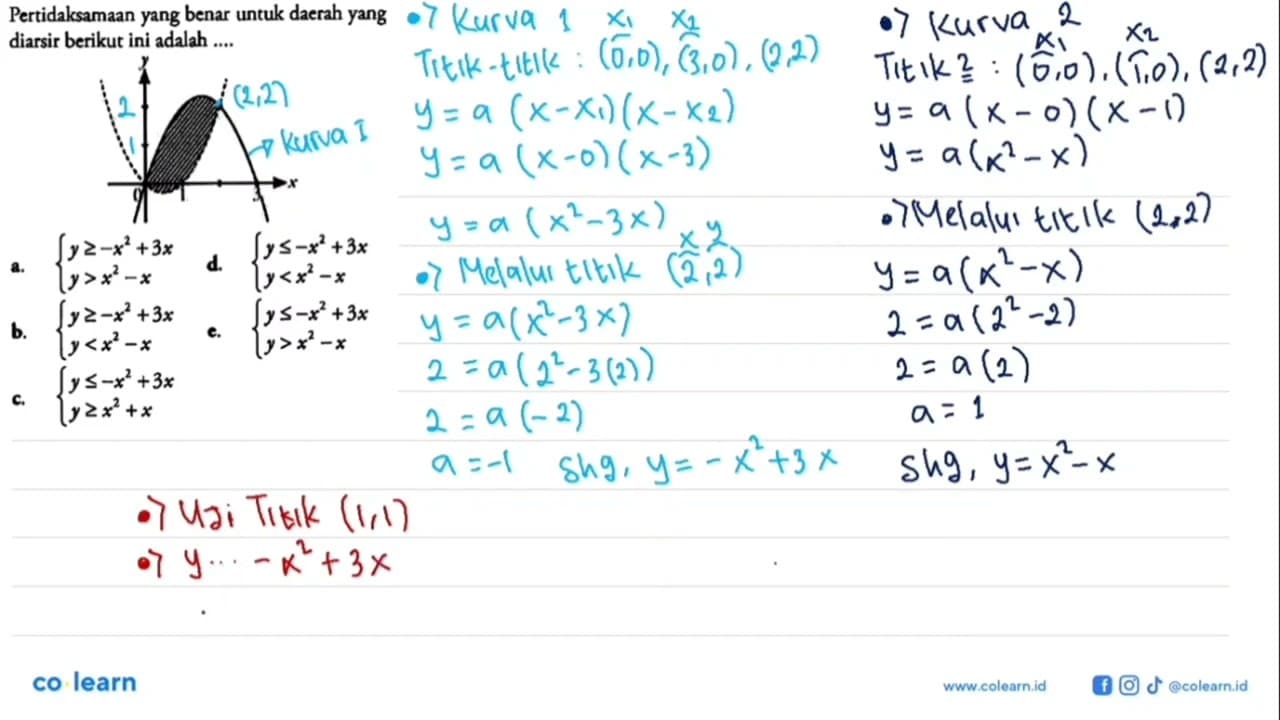 Pertidaksamaan yang benar untuk daerah yang
diarsir berikut ini adalah ....
y
2
(2,2)
1
Kurva I
0
1
3
x
a. { y ≥ -x² + 3x
y > x² - x
b. { y ≥ -x² + 3x
y < x² - x
c. { y ≤ -x² + 3x
y ≥ x² + x
d. { y ≤ -x² + 3x
y < x² - x
e. { y ≤ -x² + 3x
y > x² - x
•> Kurva 1
x₁ x₂
Titik-titik : (0,0), (3,0), (2,2)
y = a (x - x₁)(x - x₂)
y = a (x-0)(x-3)
y = a (x² - 3x)
x y
•> Melalui titik (2,2)
y = a(x² - 3x)
2 = a(2² - 3(2))
2 = a(-2)
a = -1 shg, y = -x² + 3x
•> Kurva 2
x₁ x₂
Titik2 : (0,0), (1,0), (2,2)
y = a (x - 0)(x - 1)
y = a(x² - x)
•> Melalui titik (2,2)
y = a(x² - x)
2 = a(2² - 2)
2 = a(2)
a = 1
shg, y = x² - x
•> Uji Titik (1,1)
•> y ... -x² + 3x
co·learn
www.colearn.id
@colearn.id